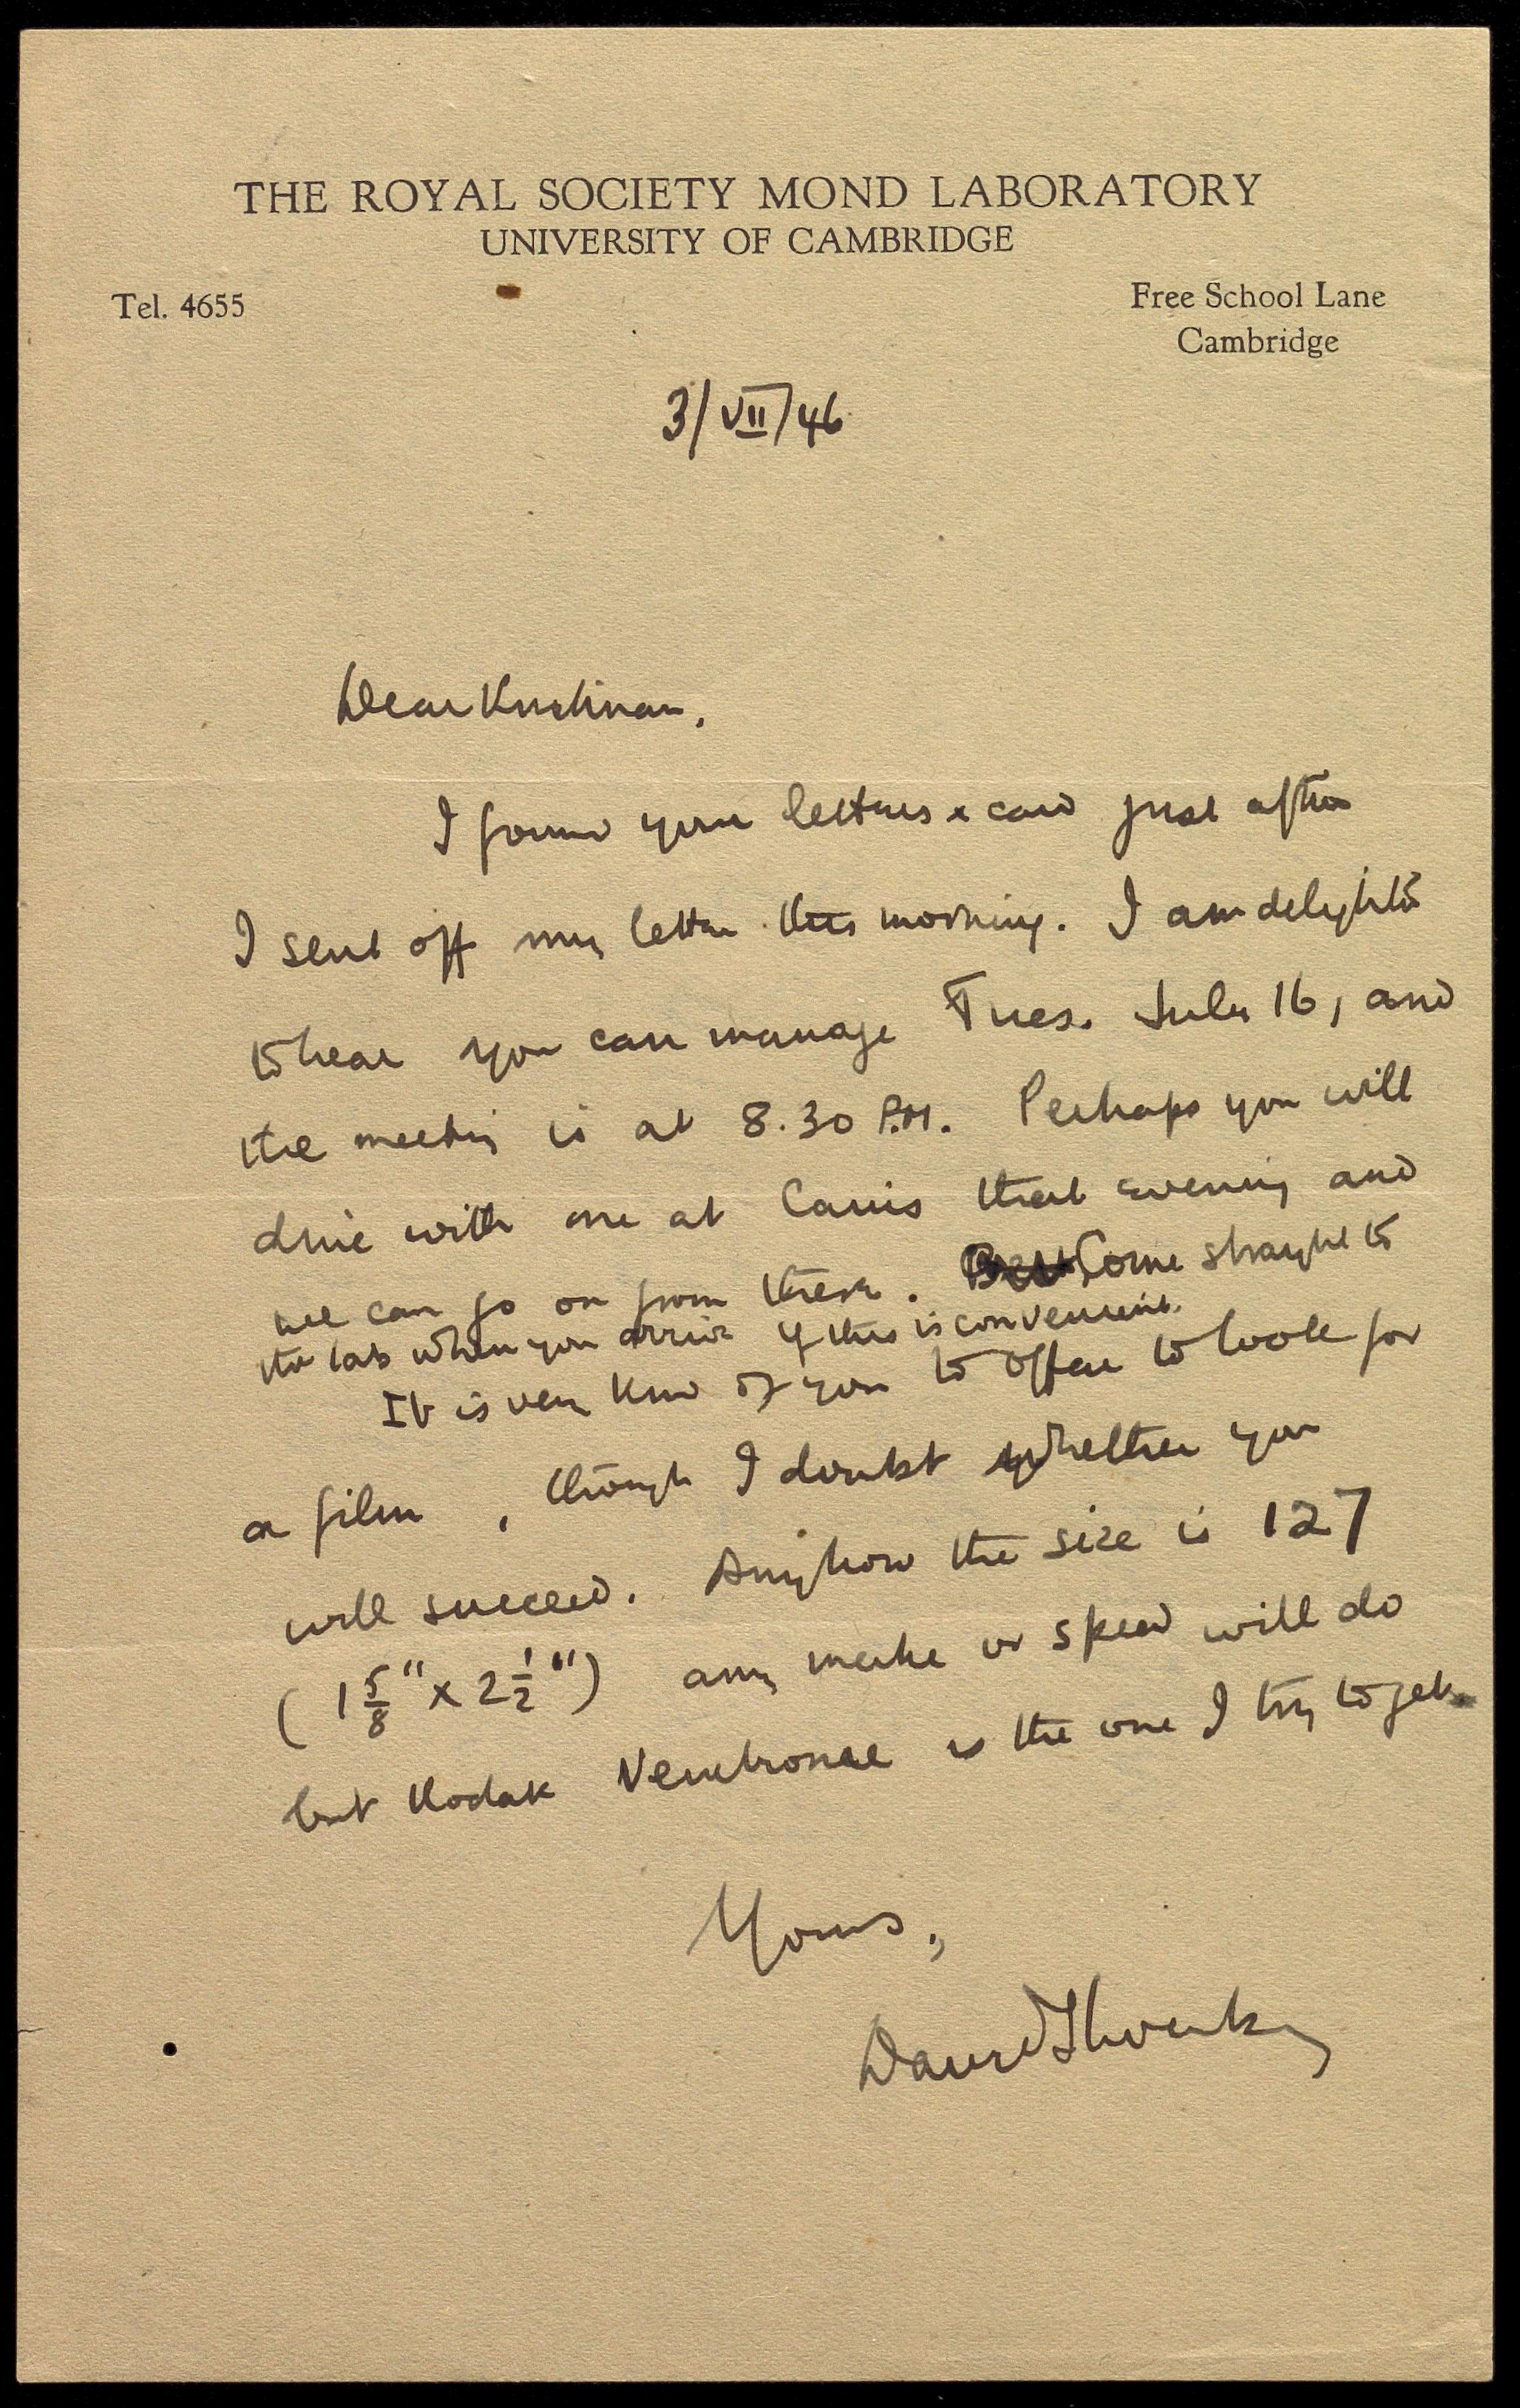 THE ROYAL SOCIETY MOND LABORATORY
UNIVERSITY OF CAMBRIDGE
Tel. 4655
Free School Lane
Cambridge
3/VII/46
Dear Krishnan,
I found your letters & card just after
I sent off my letter this morning. I am delighted
to hear you can manage Tues. July 16, and
the meeting is at 8.30 P.M. Perhaps you will
dine with me at Caius that evening and
we can go on from there. Come straight to
the lab when you arrive if this is convenient.
It is very kind of you to offer to look for
a film, though I doubt whether you
will succeed. Anyhow the size is 127
(1 5/8" x 2 1/2") any make or speed will do
but Kodak Verichrome is the one I try to get.
Yours,
David Shoenberg